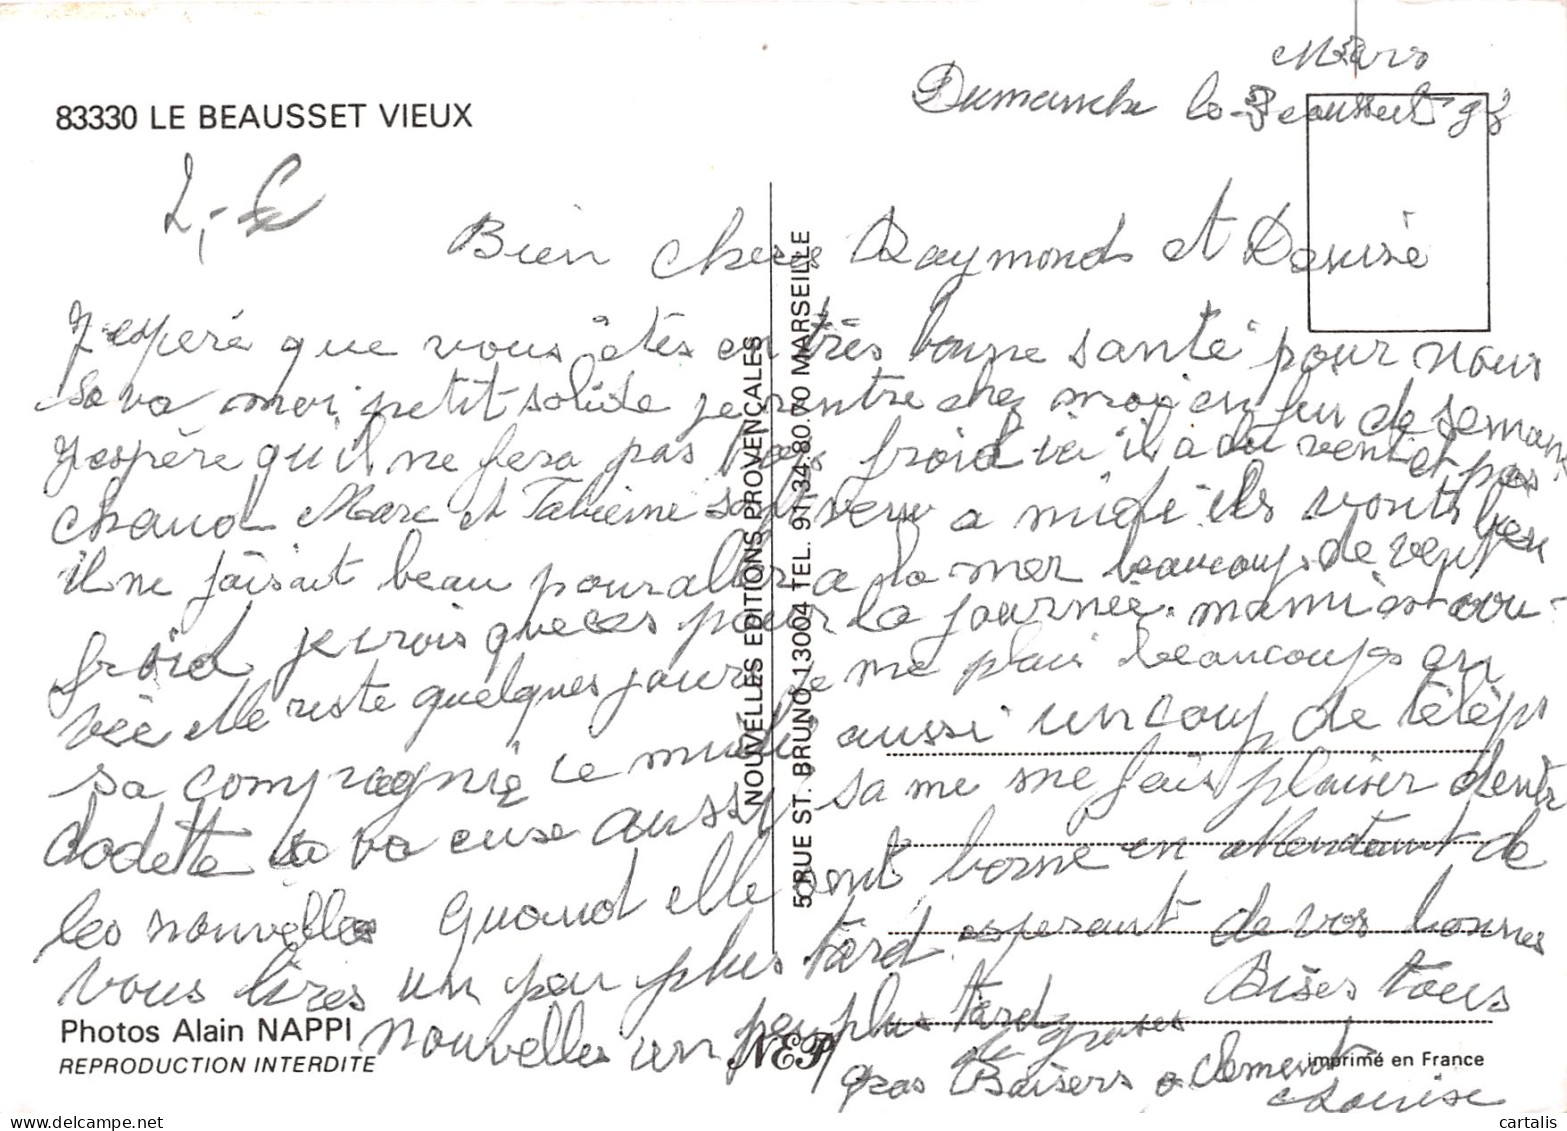 83330 LE BEAUSSET VIEUX
Mars
Dimanche le Beausset 93
2,-€
Bien chers Raymonds et Désiré
J'esperé que vous êtès en très bonne santé pour nous
sa va moi petit solide je rentre chez moi en fin de semaine
J'espère qu'il ne fera pas trop froid ici il a du vent et pas
chaud Marc et Fabienne sont venu a midi ils vonts bien
il ne faisait beau pour aller a la mer beaucoup de vent
froid je crois que ces pour la journée. mami est
elle reste quelques jours je me plais beaucoups en
sa compagnie ce midi aussi un coup de télép
dodette sa va euse aussy sa me me fais plaisir
les nouvelles quand elle sont bonne en attendant de
vous lires un peu plus tard esperant de vos bonnes
nouvelles un peu plus tard Bisès tous
de grosses
gras Baisers a clement
Louise
NOUVELLES EDITIONS PROVENÇALES
5 RUE ST. BRUNO 13004 TEL. 91.34.80.70 MARSEILLE
Photos Alain NAPPI
REPRODUCTION INTERDITE
NEP
imprimé en France
cartalis